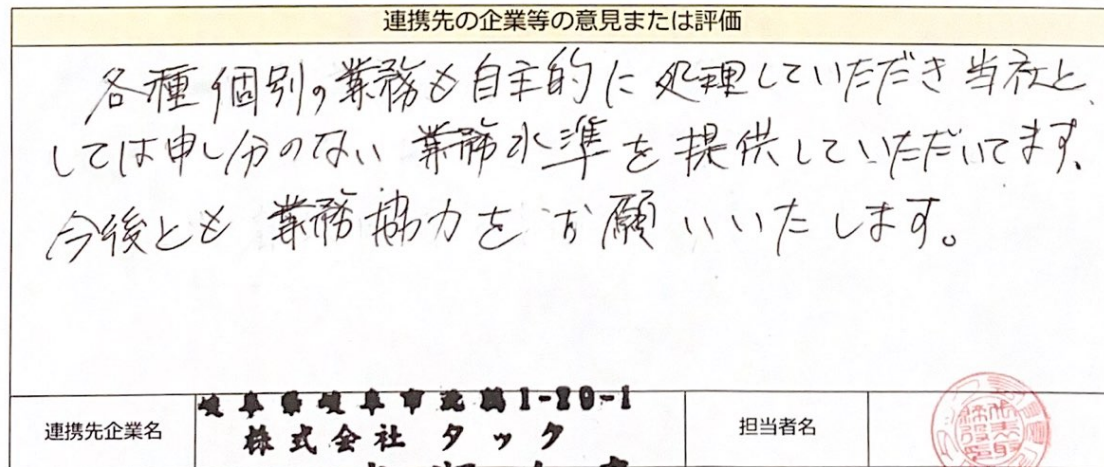 連携先の企業等の意見または評価
各種個別の業務も自主的に処理していただき当社と
しては申し分のない業務水準を提供していただいてます。
今後とも業務協力をお願いいたします。
連携先企業名
岐阜県岐阜市北鶉1-20-1
株式会社 タック
担当者名